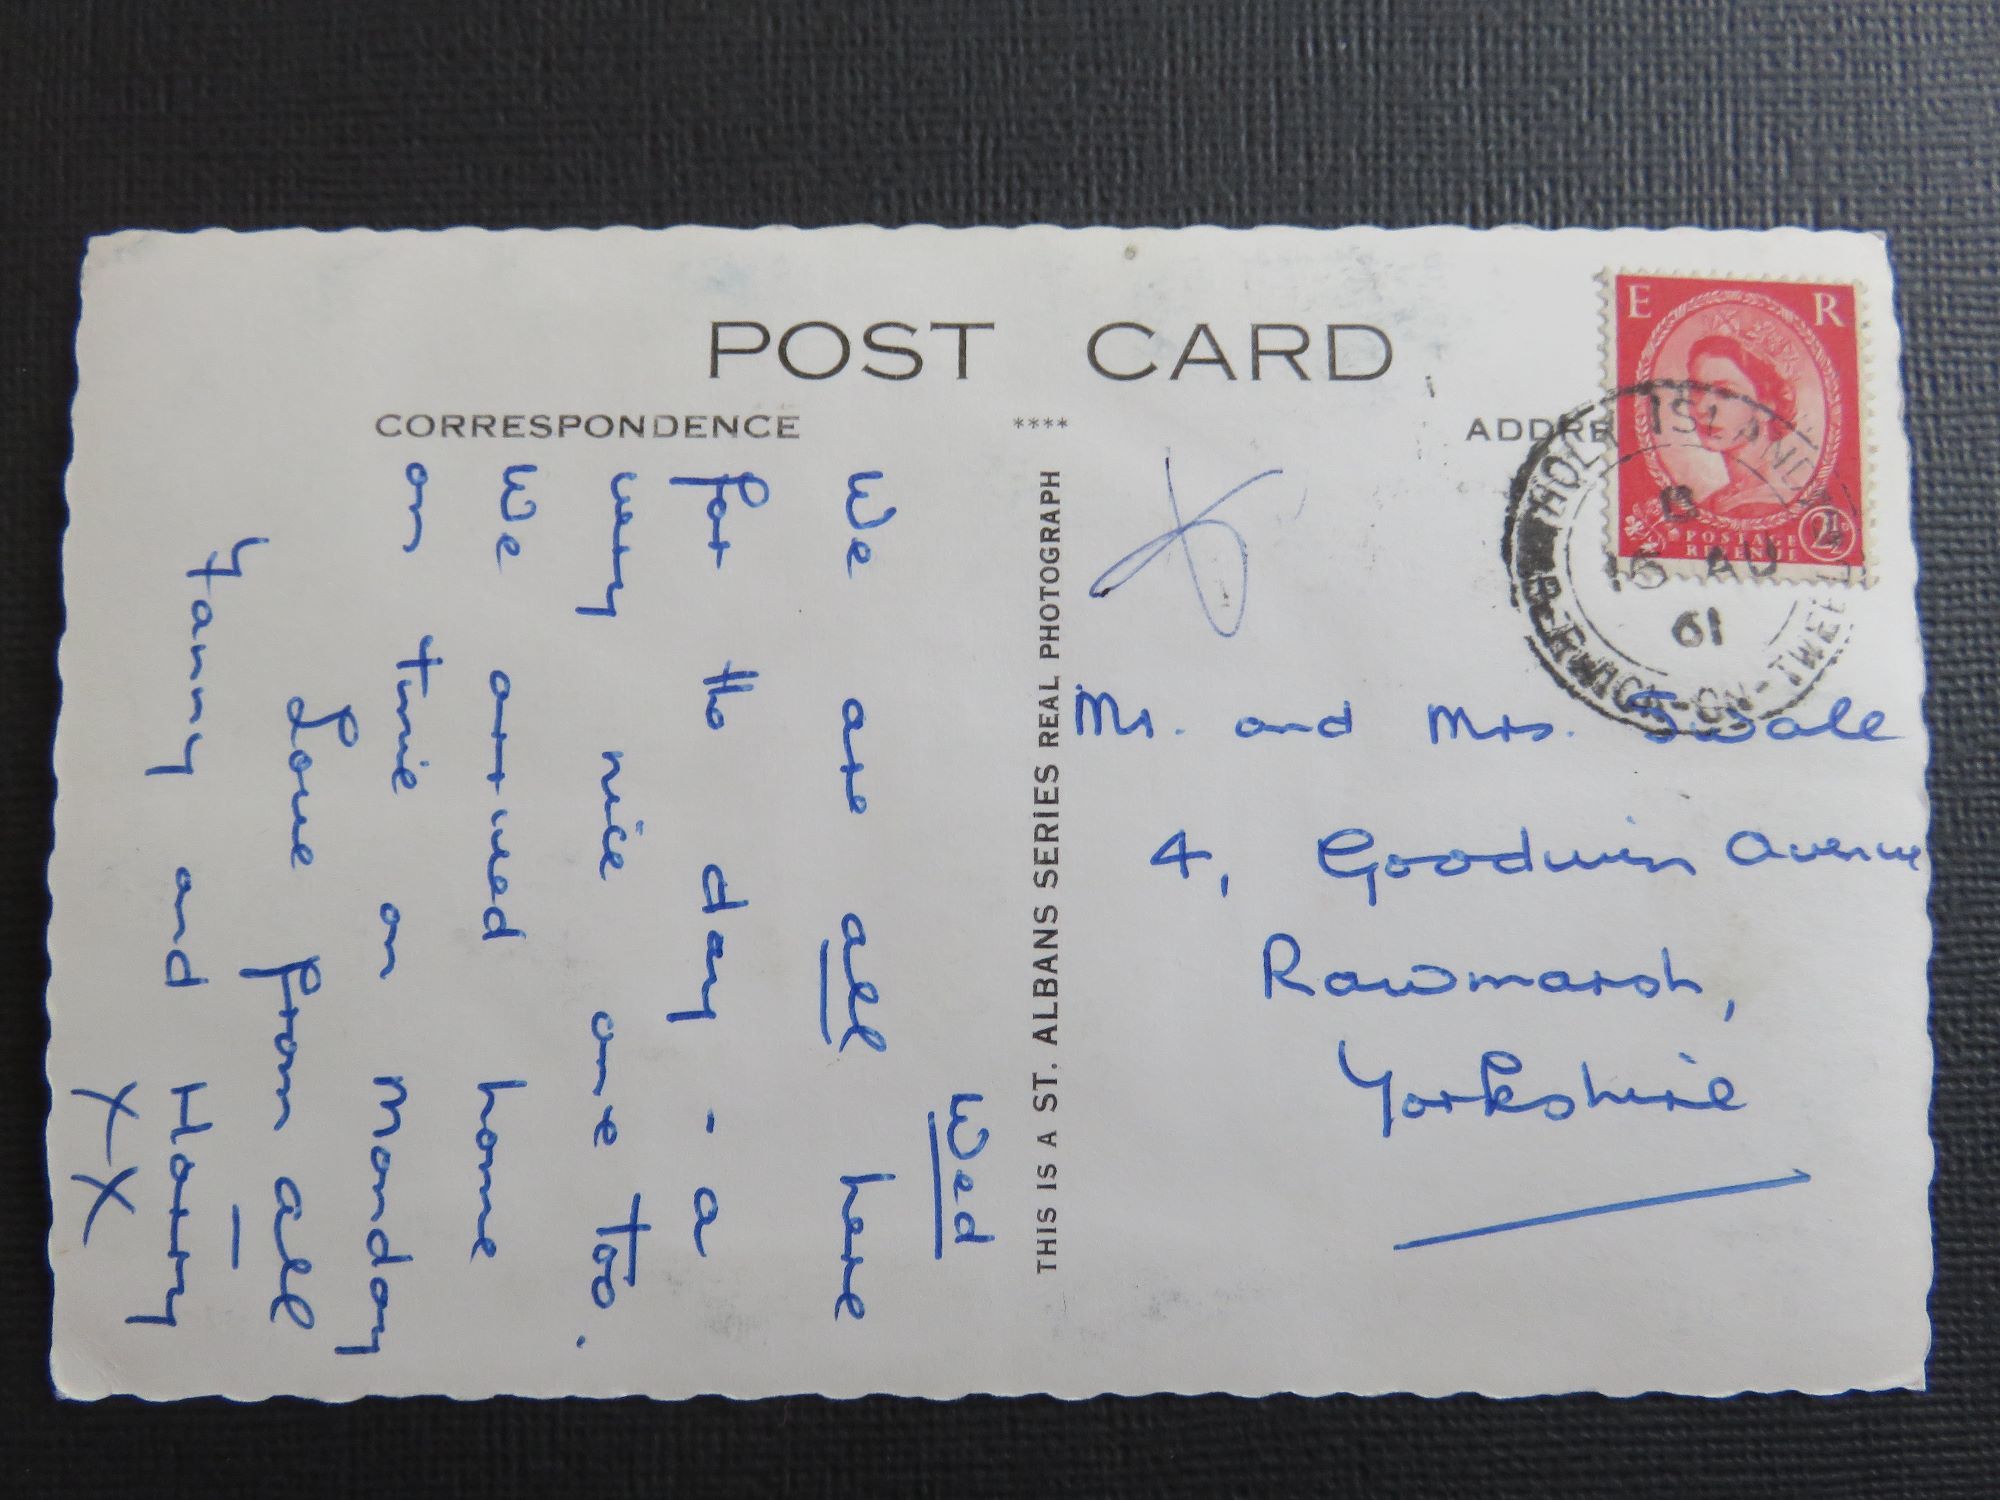 POST CARD
CORRESPONDENCE
****
ADDRE
E R
POSTAGE
REVENUE
2½D
HOLY ISLAND
B
16 AU
61
BERWICK-ON-TWEED
THIS IS A ST. ALBANS SERIES REAL PHOTOGRAPH
Wed
We are all here
for the day - a
very nice one too.
We arrived home
on time on Monday
Love from all
Fanny and Harry
XX
Mr. and Mrs. Swale
4, Goodwin Avenue
Rawmarsh,
Yorkshire